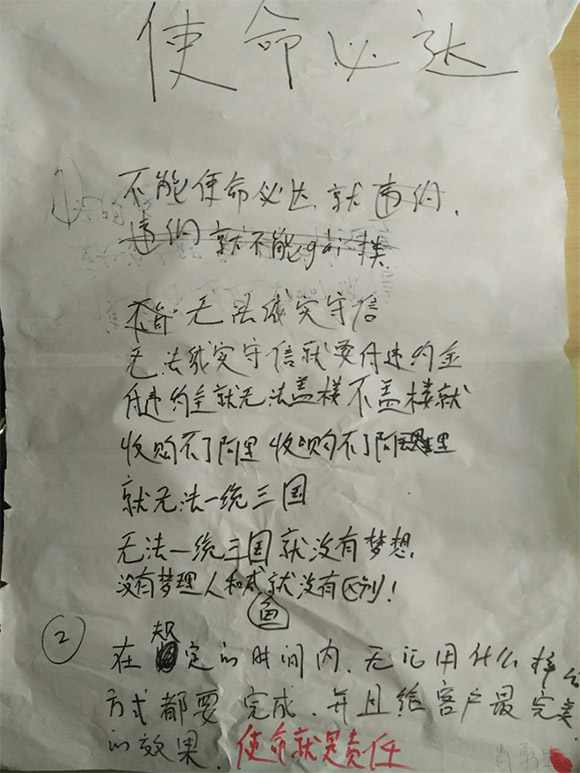 使命必达
不能使命必达,就违约,
违约就不能gai楼
不能无法诚实守信
无法诚实守信就要付违约金
付违约金就无法盖楼 不盖楼就
收购不了阿里 收购不了阿里
就无法一统三国
无法一统三国就没有梦想,
没有梦理人和咸鱼就没有区别!
② 在规定的时间内,无论用什么样
方式都要完成,并且给客户最完美
的效果, 使命就是责任